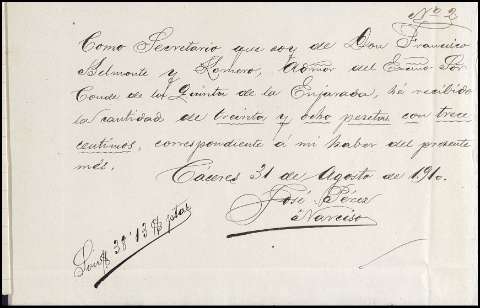 Nº 2
Como Secretario que soy de Don Francisco
Belmonte y Romero, Admor del Excmo Sor
Conde de la Quinta de la Enjarada, hé recibido
la cantidad de treinta y ocho pesetas con trece
centimos, correspondiente á mi haber del presente
més.
Cáceres 31 de Agosto de 1910.
José Pérez
á Narciso
Son # 38'13 # ptas